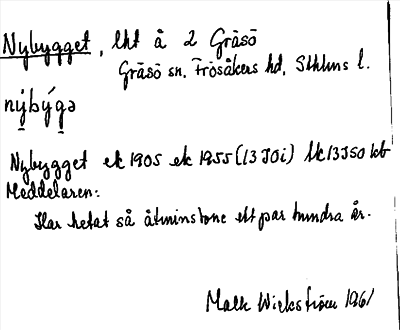 Nybygget, lht å 2 Gräsö
Gräsö sn. Frösåkers hd, Sthlms l.
nýbýgə
Nybygget ek 1905 ek 1955 (13 J0i) lk 13 J50 kb
Meddelaren:
Har hetat så åtminstone ett par hundra år.
Wickström 1961